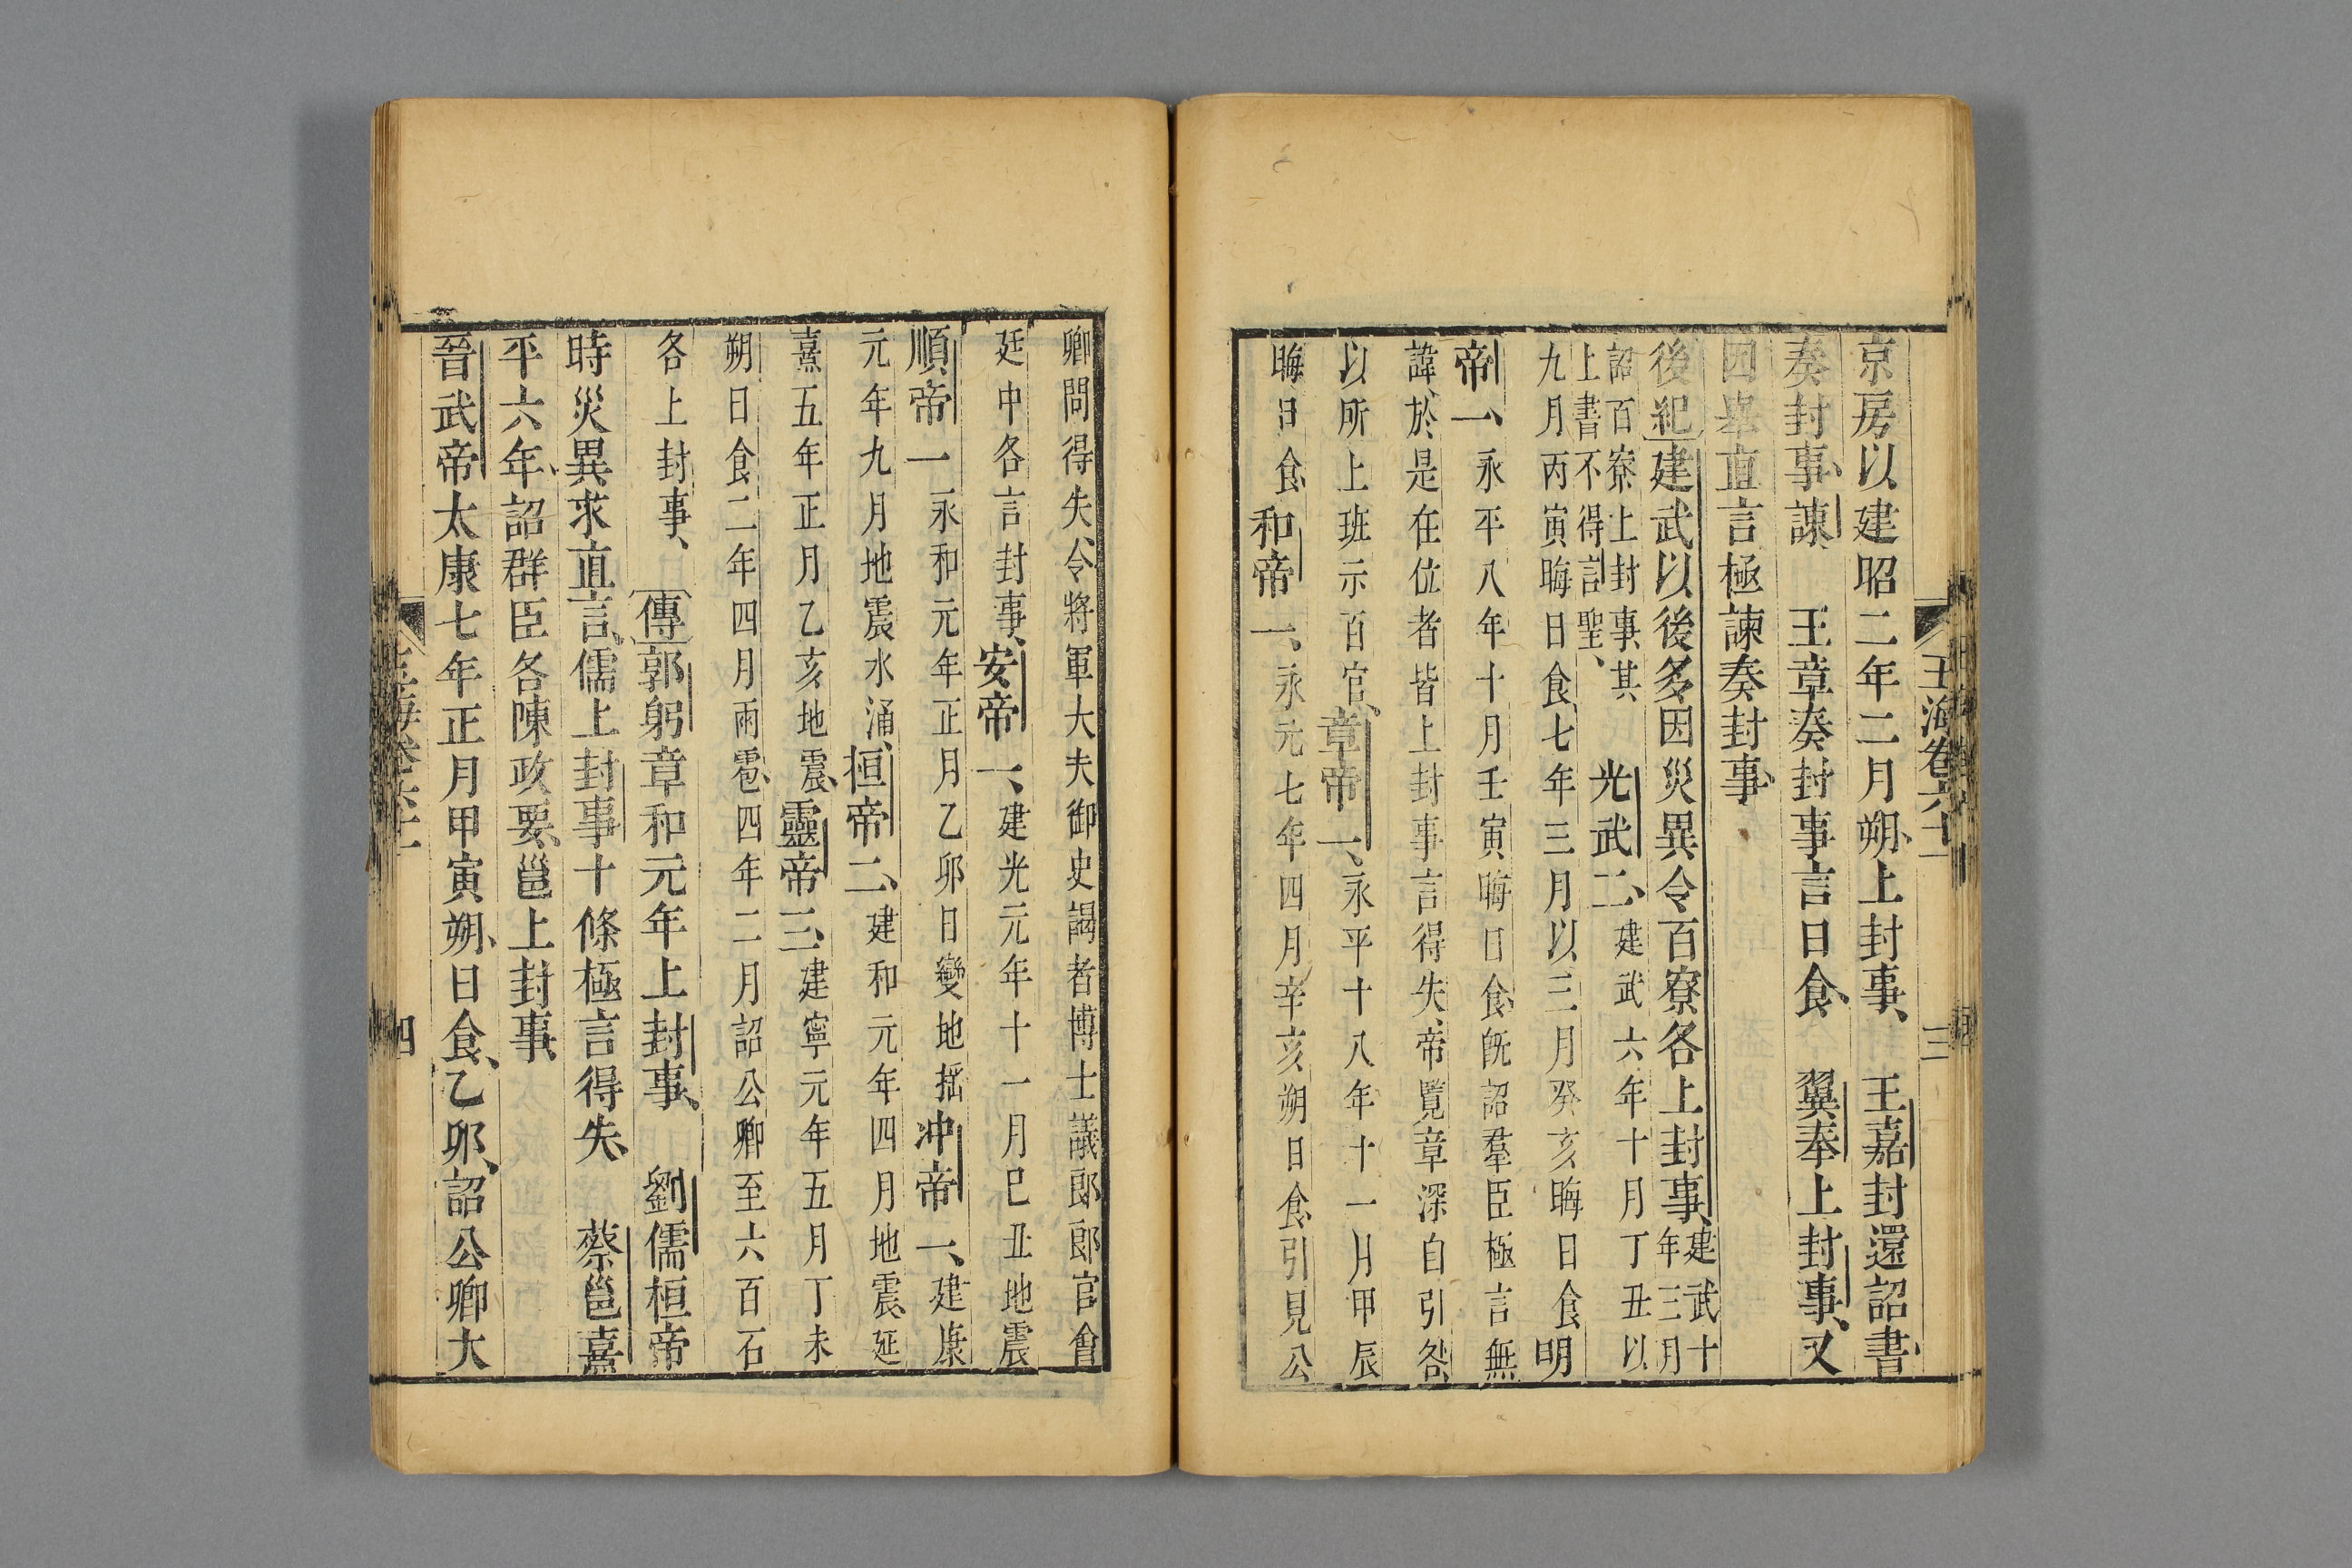 玉海卷六十一
三
京房以建昭二年二月朔、上封事、王嘉封還詔書
奏封事、諫　王章奏封事言日食、翼奉上封事、又
因畢直言極諫奏封事、
後紀建武以後多因災異令百寮各上封事、建武十
年三月
詔百寮上封事其
上書不得言聖、光武二、建武六年十月丁丑以
九月丙寅晦日食七年三月以三月癸亥晦日食明
帝一、永平八年十月壬寅晦日食、旣詔羣臣極言無
諱、於是在位者皆上封事言得失、帝覽章深自引咎、
以所上班示百官、章帝一、永平十八年十一月甲辰
晦日食、和帝一、永元七年四月辛亥朔日食、引見公
卿問得失、令將軍大夫御史謁者博士議郎郎官會
廷中各言封事、安帝一、建光元年十一月巳丑地震
順帝一永和元年正月乙卯日變地搖冲帝一、建康
元年九月地震水涌、桓帝二、建和元年四月地震、延
熹五年正月乙亥地震、靈帝三、建寧元年五月丁未
朔日食二年四月雨雹、四年二月詔公卿至六百石
各上封事、傳郭躬章和元年上封事、劉儒桓帝
時災異求直言、儒上封事十條極言得失、蔡邕熹
平六年、詔群臣各陳政要、邕上封事、
晉武帝太康七年正月甲寅朔、日食、乙卯、詔公卿大
玉海卷六十一
四